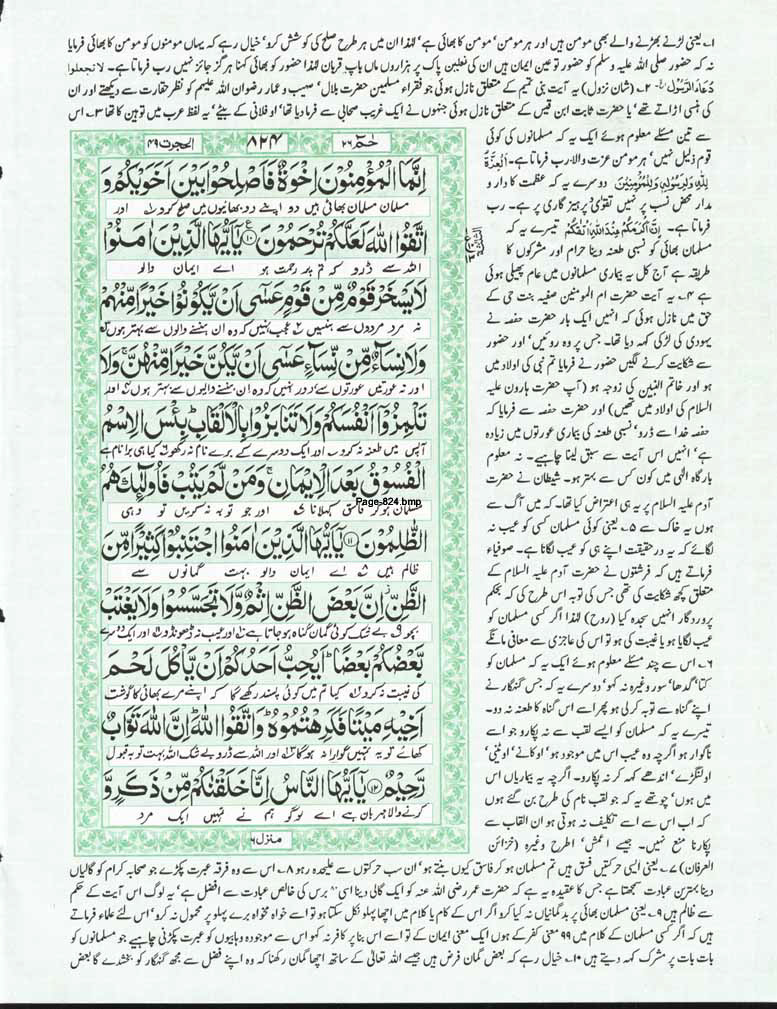 ۱۔ یعنی لڑنے بھڑنے والے بھی مومن ہیں اور ہر مومن' مومن کا بھائی ہے' لہٰذا ان میں ہر طرح صلح کی کوشش کرو' خیال رہے کہ یہاں مومنوں کو مومن کا بھائی فرمایا
نہ کہ حضور صلی اللہ علیہ وسلم کو حضور تو عین ایمان ہیں ان کی نعلین پاک پر ہزاروں ماں باپ قربان لہٰذا حضور کو بھائی کہنا ہر گز جائز نہیں رب فرماتا ہے۔ لاتجعلوا
دُعَاءَ الرَّسُوْلِ ۲۔ (شان نزول) یہ آیت بنی تمیم کے متعلق نازل ہوئی جو فقراء مسلمین حضرت بلال' صہیب و عمار رضوان اللہ علیہم کو نظر حقارت سے دیکھتے اور ان
کی ہنسی اڑاتے تھے' یا حضرت ثابت ابن قیس کے متعلق نازل ہوئی جنہوں نے ایک غریب صحابی سے فرما دیا تھا' او فلانی کے بیٹے' یہ لفظ عرب میں توہین کا تھا ۳۔ اس
سے تین مسئلے معلوم ہوئے ایک یہ کہ مسلمانوں کی کوئی
قوم ذلیل نہیں' ہر مومن عزت والا' رب فرماتا ہے۔
دوسرے یہ کہ عظمت کا دار و
مدار محض نسب پر نہیں تقویٰ و پرہیز گاری پر ہے۔ رب
فرماتا ہے۔ تیسرے یہ کہ
مسلمان بھائی کو نسبی طعنہ دینا حرام اور مشرکوں کا
طریقہ ہے آج کل یہ بیماری مسلمانوں میں عام پھیلی ہوئی
ہے ۴۔ یہ آیت حضرت ام المومنین صفیہ بنت حی کے
حق میں نازل ہوئی کہ انہیں ایک بار حضرت حفصہ نے
یہودی کی لڑکی کہہ دیا تھا۔ جس پر وہ روئیں' اور حضور
سے شکایت کرنے لگیں حضور نے فرمایا تم نبی کی اولاد میں
ہو اور خاتم النبین کی زوجہ ہو (آپ حضرت ہارون علیہ
السلام کی اولاد میں تھیں) اور حضرت حفصہ سے فرمایا کہ
حفصہ خدا سے ڈرو' نسبی طعنہ کی بیماری عورتوں میں زیادہ
ہے' انہیں اس آیت سے سبق لینا چاہیے۔ نہ معلوم
بارگاہ الٰہی میں کون کس سے بہتر ہو۔ شیطان نے حضرت
آدم علیہ السلام پر یہ ہی اعتراض کیا تھا۔ کہ میں آگ سے
ہوں یہ خاک سے ۵۔ یعنی کوئی مسلمان کسی کو عیب نہ
لگائے کہ یہ درحقیقت اپنے ہی کو عیب لگانا ہے۔ صوفیاء
فرماتے ہیں کہ فرشتوں نے حضرت آدم علیہ السلام کے
متعلق کچھ شکایت کی تھی جس کی توبہ اس طرح کی کہ بحکم
پروردگار انہیں سجدہ کیا (روح) لہٰذا اگر کسی مسلمان کو
عیب لگایا ہو یا غیبت کی ہو تو اس کی عاجزی سے معافی مانگے
۶۔ اس سے چند مسئلے معلوم ہوئے ایک یہ کہ مسلمان کو
کتا' گدھا' سور وغیرہ نہ کہو' دوسرے یہ کہ جس گنہگار نے
اپنے گناہ سے توبہ کر لی ہو پھر اسے اس گناہ کا طعنہ نہ دو۔
تیسرے یہ کہ مسلمان کو ایسے لقب سے نہ پکارو جو اسے
ناگوار ہو اگرچہ وہ عیب اس میں موجود ہو' او کانے' او لٹنی'
او لنگڑے' اندھے کہہ کر نہ پکارو۔ اگرچہ یہ بیماریاں اس
میں ہوں' چوتھے یہ کہ جو لقب نام کی طرح بن گئے ہوں
کہ اب اس سے اسے تکلیف نہ ہوتی ہو ان القاب سے
پکارنا منع نہیں۔ جیسے اعمش' اطرح وغیرہ (خزائن
حٰمٓ ۲۶ ۸۲۴ الحجرٰت ۴۹
اِنَّمَا الْمُؤْمِنُوْنَ اِخْوَةٌ فَاَصْلِحُوْا بَيْنَ اَخَوَيْكُمْ وَ
مسلمان مسلمان بھائی ہیں تو اپنے دو بھائیوں میں صلح کرو اور
اتَّقُوا اللّٰهَ لَعَلَّكُمْ تُرْحَمُوْنَ ۝۱۰ يٰٓاَيُّهَا الَّذِيْنَ اٰمَنُوْا
اللہ سے ڈرو کہ تم پر رحمت ہو اے ایمان والو
لَا يَسْخَرْ قَوْمٌ مِّنْ قَوْمٍ عَسٰٓى اَنْ يَّكُوْنُوْا خَيْرًا مِّنْهُمْ
نہ مرد مردوں سے ہنسیں عجب نہیں کہ وہ ان ہنسنے والوں سے بہتر ہوں
وَلَا نِسَآءٌ مِّنْ نِّسَآءٍ عَسٰٓى اَنْ يَّكُنَّ خَيْرًا مِّنْهُنَّ ۚ وَلَا
اور نہ عورتیں عورتوں سے دور نہیں کہ وہ ان ہنسنے والیوں سے بہتر ہوں اور
تَلْمِزُوْٓا اَنْفُسَكُمْ وَلَا تَنَابَزُوْا بِالْاَلْقَابِ ؕ بِئْسَ الِاسْمُ
آپس میں طعنہ نہ کرو اور ایک دوسرے کے برے نام نہ رکھو کیا ہی برا نام ہے
الْفُسُوْقُ بَعْدَ الْاِيْمَانِ ۚ وَمَنْ لَّمْ يَتُبْ فَاُولٰٓئِكَ هُمُ
Page-824.bmp
مسلمان ہو کر فاسق کہلانا اور جو توبہ نہ کریں تو وہی
الظّٰلِمُوْنَ ۝۱۱ يٰٓاَيُّهَا الَّذِيْنَ اٰمَنُوا اجْتَنِبُوْا كَثِيْرًا مِّنَ
ظالم ہیں اے ایمان والو بہت گمانوں سے
الظَّنِّ ؗ اِنَّ بَعْضَ الظَّنِّ اِثْمٌ وَّلَا تَجَسَّسُوْا وَلَا يَغْتَبْ
بچو بے شک کوئی گمان گناہ ہو جاتا ہے اور عیب نہ ڈھونڈو اور ایک دوسرے
بَّعْضُكُمْ بَعْضًا ؕ اَيُحِبُّ اَحَدُكُمْ اَنْ يَّاْكُلَ لَحْمَ
کی غیبت نہ کرو کیا تم میں کوئی پسند رکھے گا کہ اپنے مرے بھائی کا گوشت
اَخِيْهِ مَيْتًا فَكَرِهْتُمُوْهُ ؕ وَاتَّقُوا اللّٰهَ ؕ اِنَّ اللّٰهَ تَوَّابٌ
کھائے تو یہ تمہیں گوارا نہ ہوگا اور اللہ سے ڈرو بے شک اللہ بہت توبہ قبول
رَّحِيْمٌ ۝۱۲ يٰٓاَيُّهَا النَّاسُ اِنَّا خَلَقْنٰكُمْ مِّنْ ذَكَرٍ وَّ
کرنے والا مہربان ہے اے لوگو ہم نے تمہیں ایک مرد
منزل ۶
العرفان) ۷۔ یعنی ایسی حرکتیں فسق ہیں تم مسلمان ہو کر فاسق کیوں بنتے ہو' ان سب حرکتوں سے علیحدہ رہو ۸۔ اس سے وہ فرقہ عبرت پکڑے جو صحابہ کرام کو گالیاں
دینا بہترین عبادت سمجھتا ہے جس کا عقیدہ یہ ہے کہ حضرت عمر رضی اللہ عنہ کو ایک گالی دینا اسی برس کی خالص عبادت سے افضل ہے' یہ لوگ اس آیت کے حکم
سے ظالم ہیں ۹۔ یعنی مسلمان بھائی پر بدگمانیاں نہ کیا کرو اگر اس کے کام یا کلام میں اچھا پہلو نکل سکتا ہو تو اسے خواہ نخواہ برے پہلو پر محمول نہ کرو' اس لئے علماء فرماتے
ہیں کہ اگر کسی مسلمان کے کلام میں ۹۹ معنی کفر کے ہوں ایک معنی ایمان کے تو اسے اس بنا پر کافر نہ کہو اس سے موجودہ وہابیوں کو عبرت پکڑنی چاہیے جو مسلمانوں کو
بات بات پر مشرک کہہ دیتے ہیں ۱۰۔ خیال رہے کہ بعض گمان فرض ہیں جیسے اللہ تعالیٰ کے ساتھ اچھا گمان رکھنا کہ وہ اپنے فضل سے مجھ گنہگار کو بخشدے گا بعض